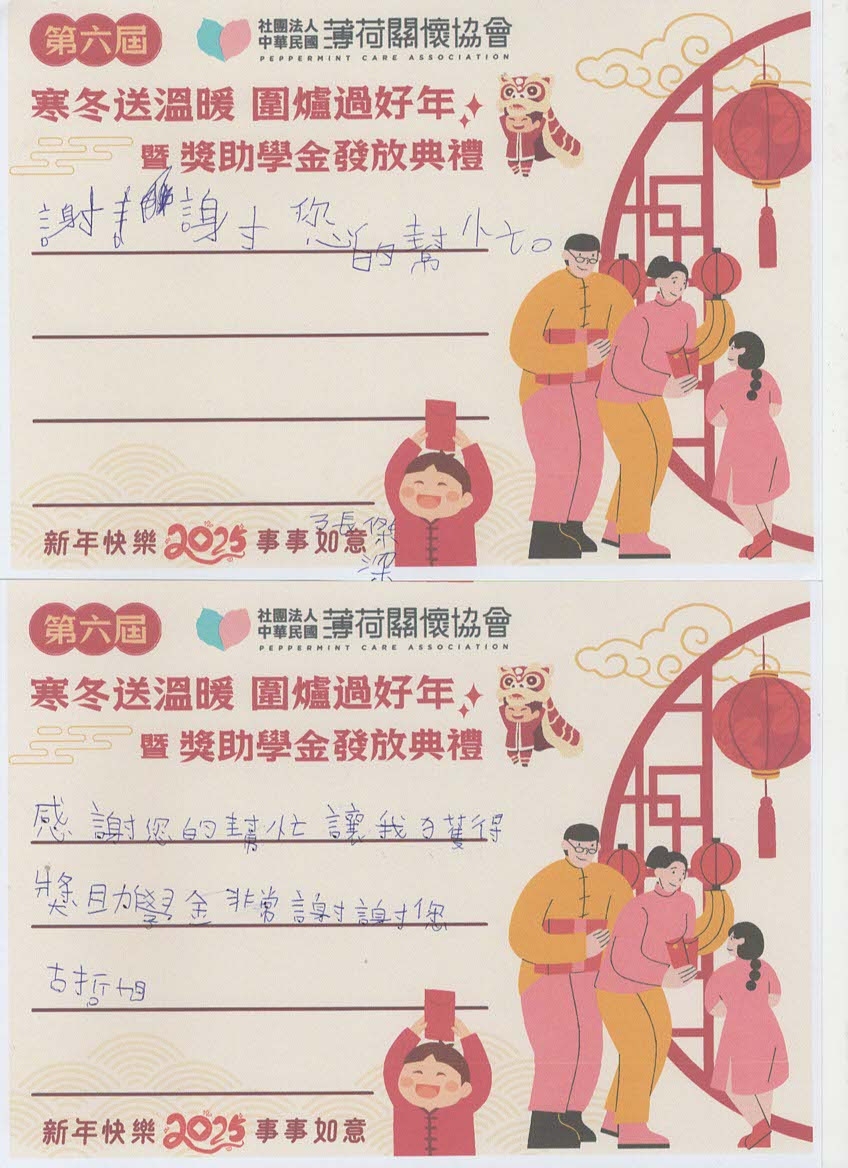 第六屆
社團法人
中華民國
薄荷關懷協會
PEPPERMINT CARE ASSOCIATION
寒冬送溫暖 圍爐過好年
暨 獎助學金發放典禮
謝謝 您的幫忙。
新年快樂 2025 事事如意
張傑
深
第六屆
社團法人
中華民國
薄荷關懷協會
PEPPERMINT CARE ASSOCIATION
寒冬送溫暖 圍爐過好年
暨 獎助學金發放典禮
感謝您的幫忙讓我獲得
獎助學金非常謝謝您
古哲旭
新年快樂 2025 事事如意